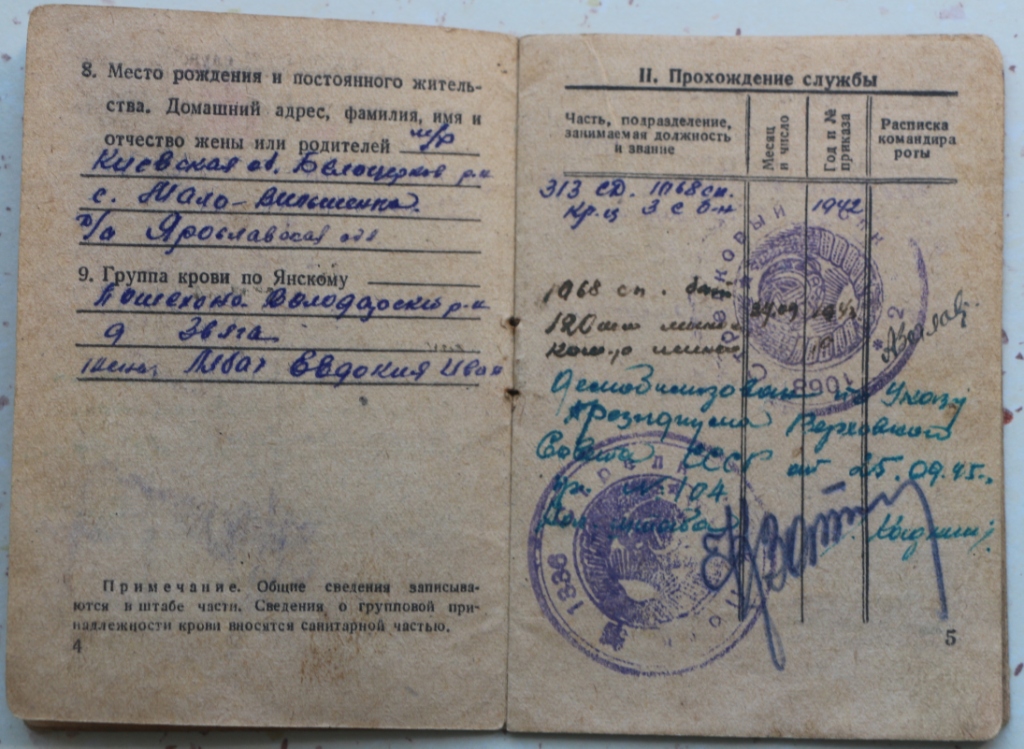 8. Место рождения и постоянного житель-
ства. Домашний адрес, фамилия, имя и
отчество жены или родителей м/р
Киевская об. Белоцерков р-н
с. Мало-Вильшенка
п/а Ярославская обл
9. Группа крови по Янскому
Пошехоно Володарский р-н
д Звяга
Евдокия Иван
Примечание. Общие сведения записыва-
ются в штабе части. Сведения о групповой при-
надлежности крови вносятся санитарной частью.
4
II. Прохождение службы
Часть, подразделение,
занимаемая должность
и звание
Месяц
и число
Год и №
приказа
Расписка
командира
роты
313 СД. 1068 сп.
Кр-ц 3 с б-н 1942
1068 сп.
120 мм
Демобилизован по Указу
Президиума Верховного
Совета СССР от 25.09.45.
пр. № 104.
Нач. штаба
1068
1336
5